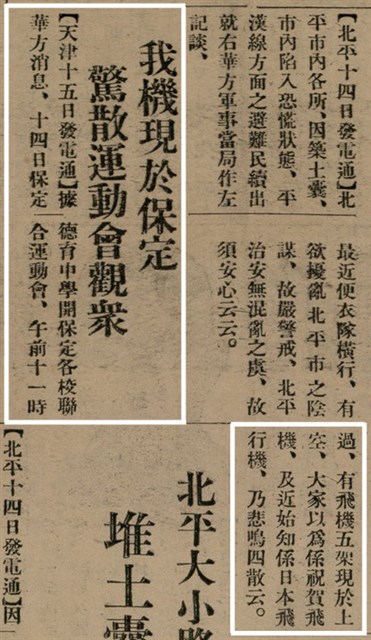 【北平十四日發電通】北
平市內各所、因築土囊、
市內陷入恐慌狀態、平
漢線方面之避難民續出
就右華方軍事當局作左
記談、
最近便衣隊橫行、有
欲擾亂北平市之陰
謀、故嚴警戒、北平
治安無混亂之虞、故
須安心云云。
我機現於保定
驚散運動會觀衆
【天津十五日發電通】據
華方消息、十四日保定
德育中學開保定各校聯
合運動會、午前十一時
過、有飛機五架現於上
空、大家以爲係祝賀飛
機、及近始知係日本飛
行機、乃悲鳴四散云。
北平大小路
堆土囊
【北平十四日發電通】因